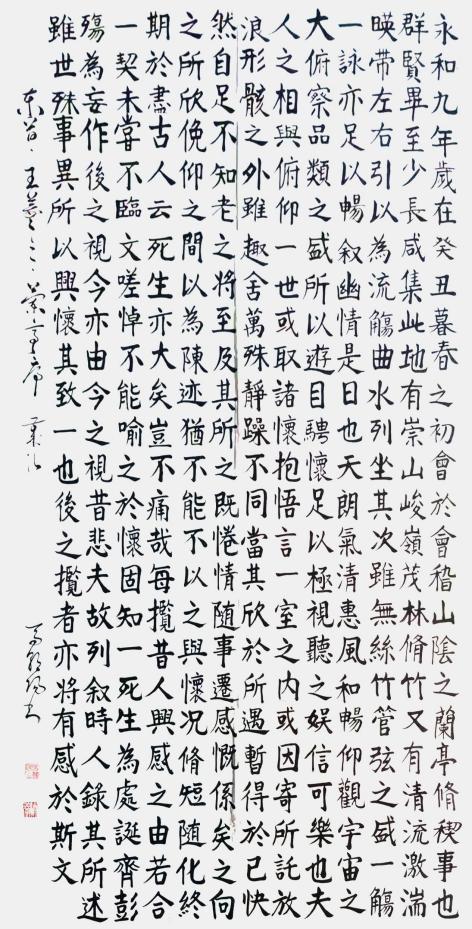 永和九年歲在癸丑暮春之初會於會稽山陰之蘭亭脩稧事也
群賢畢至少長咸集此地有崇山峻嶺茂林脩竹又有清流激湍
暎带左右引以為流觴曲水列坐其次雖無絲竹管弦之盛一觴
一詠亦足以暢叙幽情是日也天朗氣清惠風和暢仰觀宇宙之
大俯察品類之盛所以遊目騁懷足以極視聽之娱信可樂也夫
人之相與俯仰一世或取諸懷抱悟言一室之内或因寄所託放
浪形骸之外雖趣舍萬殊静躁不同當其欣於所遇暫得於己快
然自足不知老之將至及其所之既惓情随事遷感慨係矣之向
之所欣俛仰之間以為陳迹猶不能不以之與懷况脩短随化終
期於盡古人云死生亦大矣豈不痛哉每攬昔人興感之由若合
一契未嘗不臨文嗟悼不能喻之於懷固知一死生為處誕齊彭
殤為妄作後之視今亦由今之視昔悲夫故列叙時人錄其所述
雖世殊事異所以興懷其致一也後之攬者亦將有感於斯文
東晉王羲之蘭亭序